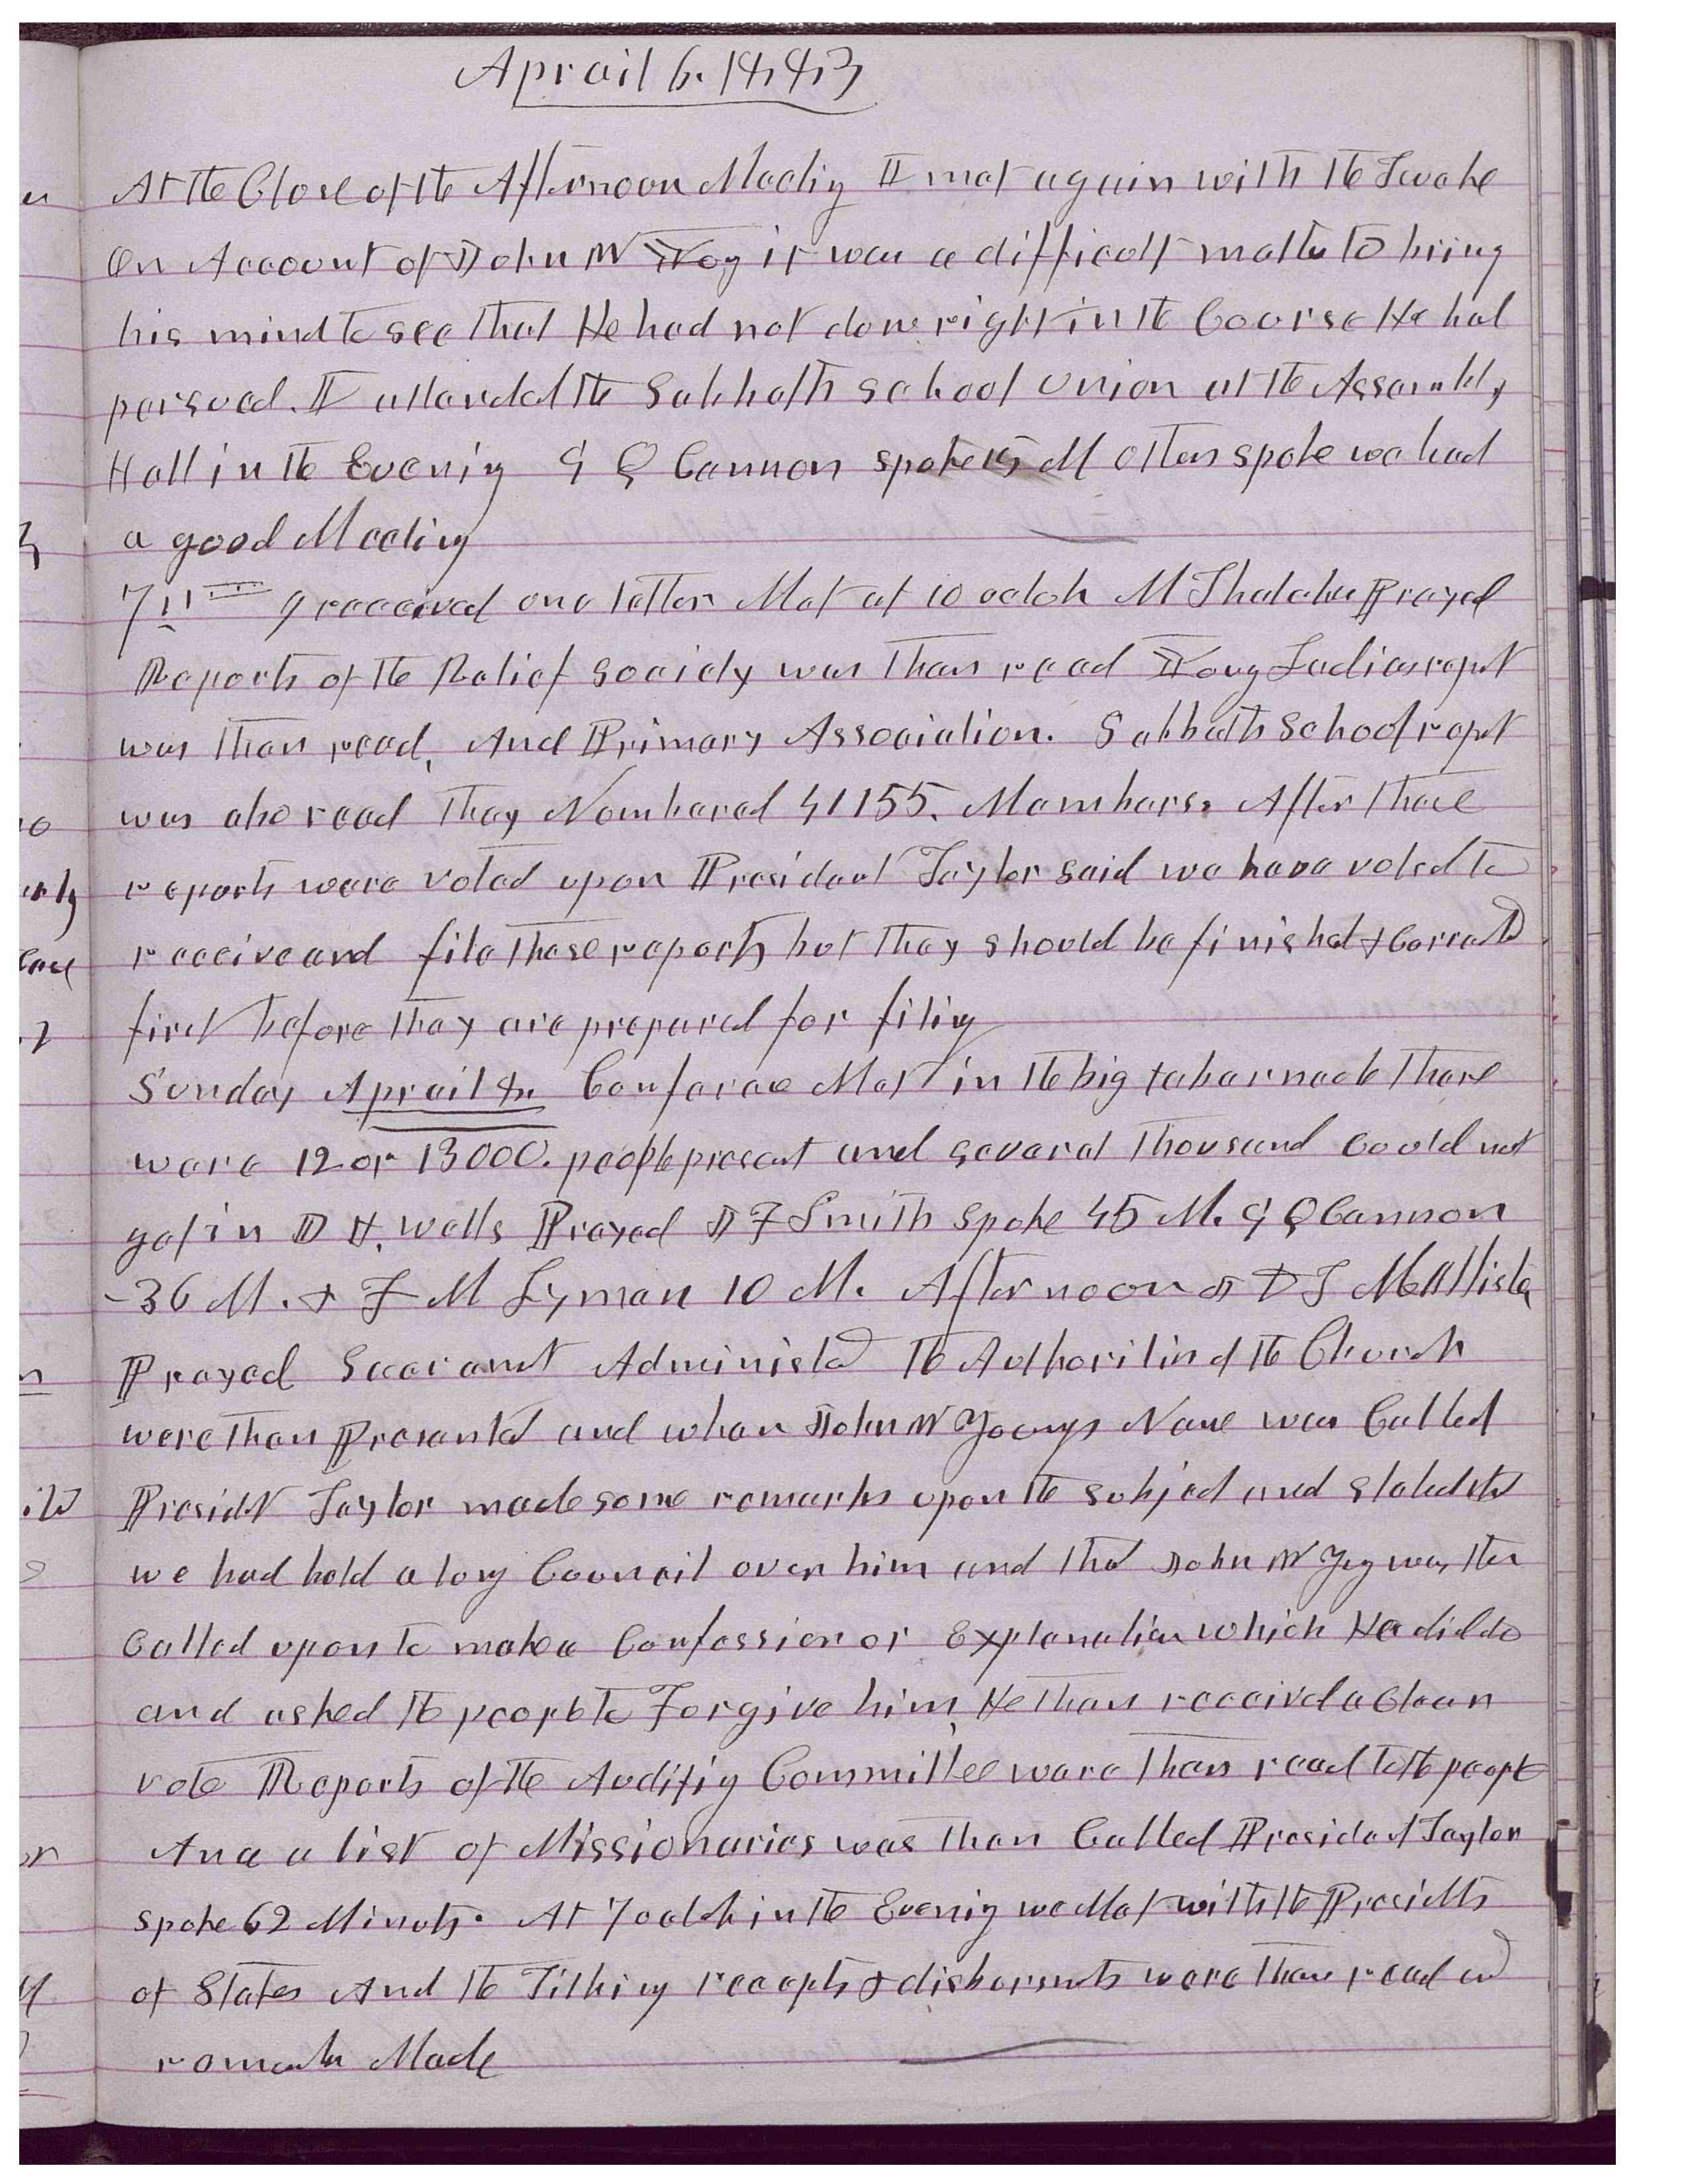 Aprail 6. 1883
At the Close of the Afternoon Meetig I met again with the Twelve
On Account of John W Young it was a difficult matter to bring
his mind to see that He had not done right in the Course He had
persued. I attended the Sabbath School Union at the Assembly
Hall in the Evenig G Q Cannon spoke 15 M others spoke we had
a good Meeting
7th I received one letter Met at 10 oclok M Thatcher Prayed
Reports of the Relief Society was then read Young Ladies report
was then read, And Primary Association. Sabbath School report
was also read They Numbered 41155. Members. After these
reports were voted upon President Taylor said we have voted to
receive and file these reports but they should be finished & Corrected
first before they are prepared for filing
Sunday Aprail 8. Conferance Met in the big tabernacle there
were 12 or 13000. people present and several thousand Could not
get in D H. Wells Prayed J F Smith Spoke 45 M. G Q Cannon
-36 M. & F M Lyman 10 M. Afternoon J D T McAllister
Prayed Sacrament Administed The Authorities of the Church
were then Presented and when John W Youngs Name was Called
President Taylor made some remarks upon the subject and stated that
we had held a long Council over him and that John W Yng was then
Called upon to make a Confession or Explanation which He did do
and asked the people to Forgive him, He then received a Clean
vote Reports of the Auditing Committee were then read to the people
And a list of Missionaries was then Called President Taylor
spoke 62 Minuts. At 7 oclok in the Evenig we Met with the Presidets
of Stakes And the Tithing recepts & disbursments were then read and
remarks Made